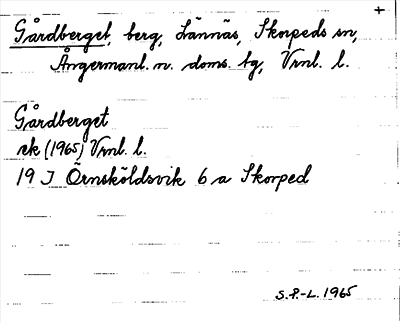 +
Gårdberget, berg, Lännäs, Skorpeds sn,
Ångermanl. n. doms. tg, Vrnl. l.
Gårdberget
ek (1965) Vrnl. l.
19 J Örnsköldsvik 6 a Skorped
S.P.-L. 1965